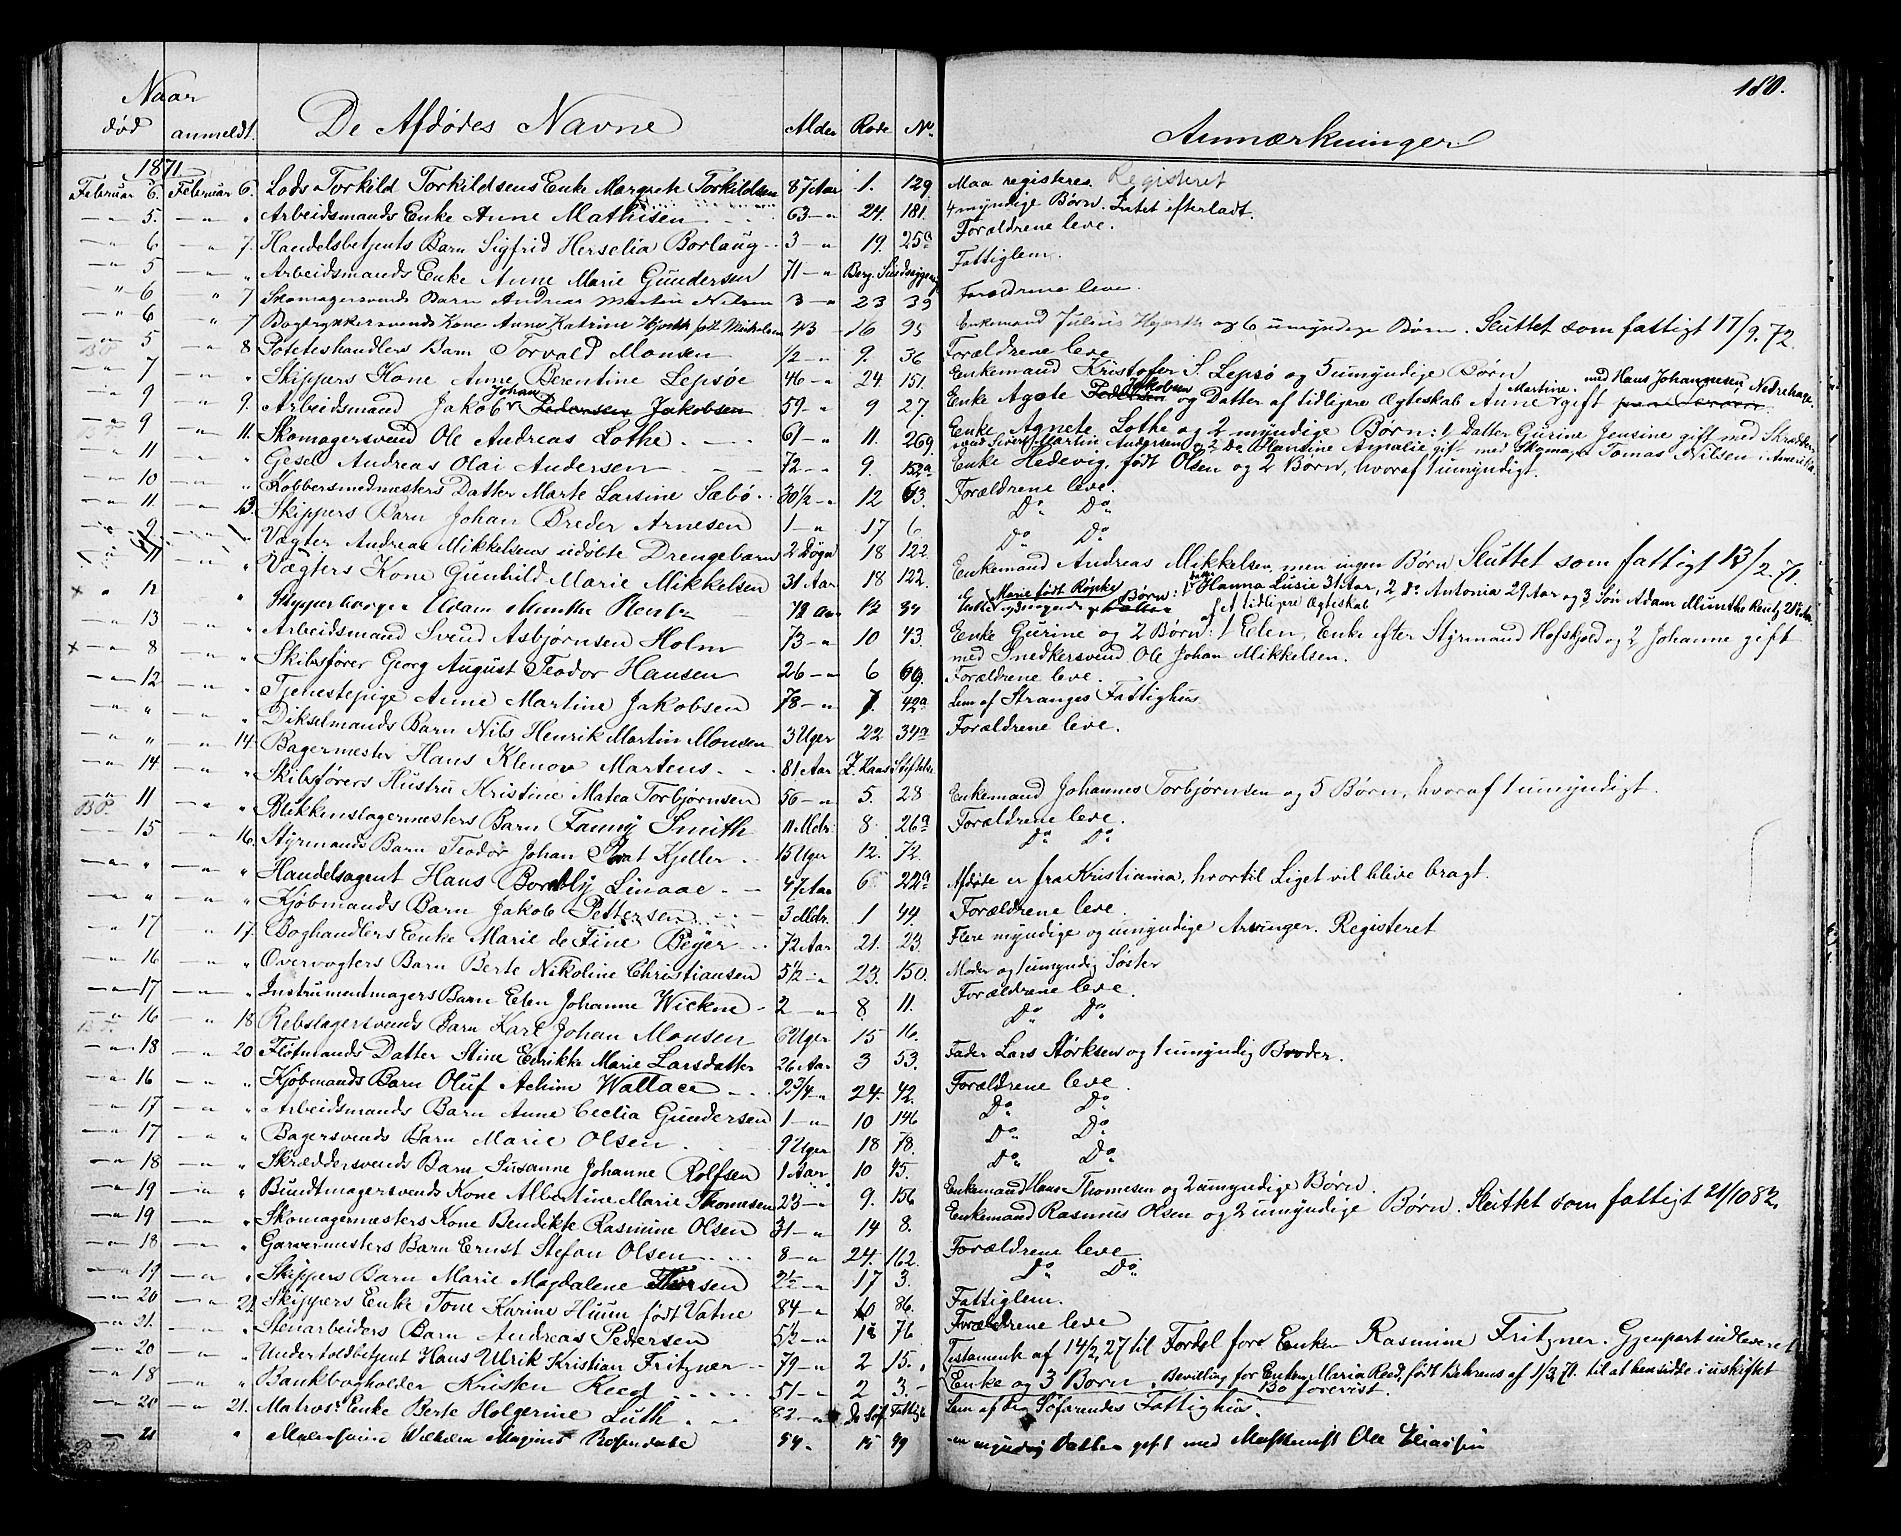 180.
Naar
død anmeldt. De Afdødes Navne Alder Rode No. Anmærkninger
1871
Februar 6. Februar 6. Lods Torkild Torkildsens Enke Margrete Torkildsen 87 Aar 1. 129. Maa registeres. Registeret
— " 5 — " " Arbeidsmands Enke Anne Mathisen 63 — " 24. 181. 4 myndige Børn. Intet efterladt.
— " 6 — " 7. Handelsbetjents Barn Sigfrid Herselia Borlaug 3 — " 19. 25c Forældrene leve.
— " 5 — " " Arbeidsmands Enke Anne Marie Gundersen 71 — " Fattiglem.
" 6 " 7 Skomagersvends Barn Andreas Martin Nilsen 3 — " 23 39 Forældrene leve.
" 6 " 7 Bogtrykkersvends Kone Anne Katrine Hjorth født Mickelsen 43 — 16 95 Enkemand Julius Hjorth og 6 umyndige Børn. Sluttet som fattigt 17/9. 72.
— " 5 — " 8 Poteteshandlers Barn Torvald Monsen 1/2 — " 9. 36 Forældrene leve
— " 7 — " " Skippers Kone Anne Berentine Lepsøe 46 — " 24. 151. Enkemand Kristofer S. Lepsø og 5 umyndige Børn
— " 9 — " 9. Arbeidsmand Jakob Johan Pedersen Jakobsen 59 — " 9 27. Enke Agate Pedersen Jakobsen og Datter af tidligere Ægteskab Anne Martine gift med Hans Johannesen Nedrehagen
— " 9 — " 11. Skomagersvend Ole Andreas Lothe 61 — " 11. 269. Enke Agnete Lothe og 2 myndige Børn: 1 Datter Gurine Jensine gift med Skrædder-
svend Sivert Martin Andersen og 2 Do Olandine Amalie gift med Skomager Tomas Nilsen i Amerika
— " 11 — " " Gesel Andreas Olai Andersen 72 — " 9. 152a Enke Hedevig, født Olsen og 2 Børn, hvoraf 1 umyndigt.
— " 10 — " " Kobbersmedmesters Datter Marte Larsine Sæbø 30 1/2 — " 12 63. Forældrene leve.
— " 11 — " 13. Skippers Barn Johan Breder Arnesen 1 — " 17 6 Do Do
— " 9 — " " Vægter Andreas Mikkelsens udøbte Drengebarn 2 Døgn 18 122 Do Do
— " 11 — " " Vægters Kone Gunhild Marie Mikkelsen 31 Aar 18 122. Enkemand Andreas Mikkelsen, men ingen Børn Sluttet som fattigt 13/2. 71.
× " 12 " Skipper borger Adam Munthe Rentz 72 Aar 12 34 Enke Marie født Röpke Børn: 1 Datter Hanna Lusie 31 Aar, 2 Do Antonia 29 Aar og 3 Søn Adam Munthe Rentz 21 Aar
af et tidligere Ægteskab
— " 13 — " " Arbeidsmand Svend Asbjørnsen Holm 73 — " 10 43. Enke Gurine og 2 Børn: 1 Elen, Enke efter Styrmand Hofskjold og 2 Johanne gift
med Snedkersvend Ole Johan Mikkelsen.
× — " 8 — " " Skibsfører Georg August Teodor Hansen 26 — " 6 69. Forældrene leve.
— " 12 — " " Tjenestepige Anne Martine Jakobsen 78 — " 7. 42a Lem af Stranges Fattighus
— " " — " " Dikselmands Barn Nils Henrik Martin Monsen 3 Uger 22 34a Forældrene leve.
— " " — " 14. Bagermester Hans Klenow Martens 81 Aar
— " 14 — " " Skibsførers Hustru Kristine Matea Torbjørnsen 56 — " 5. 28 Enkemand Johannes Torbjørnsen og 5 Børn, hvoraf 1 umyndigt.
B.P. 11 — " " Blikkenslagermesters Barn Fanny Smith 11 Mdr. 8 26a Forældrene leve.
— " 15 — " 16. Styrmands Barn Teodor Johan Prat Kjeller 15 Uger 12. 72. Do Do
— " " — " " Handelsagent Hans Bordly Linaae 47 Aar 6 22a Afdøde er fra Kristiania, hvortil Liget vil blive bragt.
— " " — " " Kjøbmands Barn Jakob Pettersen 3 Mdr. 1 44. Forældrene leve.
— " 17 " 17. Boghandlers Enke Marie de Fine Beyer 72 Aar 21. 23. Flere myndige og umyndige Arvinger. Registeret
— " 16 — " " Overvogters Barn Berte Nikoline Christiansen 5 1/2 — " 23. 150. Moder og 1 umyndig Søster
— " 17 — " " Instrumentmagers Barn Elen Johanne Wickne 2 — " 8 11. Forældrene leve.
— " 16 — " 18 Rebslagersvends Barn Karl Johan Monsen 6 Uger 15 16. Do Do
— " 18 — " 20. Fløtmands Datter Stine Edrikke Marie Larsdatter 26 Aar 3 53. Fader Lars Størksen og 1 umyndig Broder.
— " 16 — " " Kjøbmands Barn Oluf Achim Wallace 2 3/4 — " 24. 42. Forældrene leve.
— " 17 — " " Arbeidsmands Barn Anne Cecilia Gundersen 1 — " 10 146 Do Do
— " 17 — " " Bagersvends Barn Marie Olsen 9 Uger 18 78. Do Do
— " 18 — " " Skræddersvends Barn Susanne Johanne Rolfsen 1 Aar 10 45. Do Do
— " 19 — " " Bundtmagersvends Kone Albertine Marie Thomesen 23 — " 9. 156 Enkemand Hans Thomesen og 2 umyndige Børn.
— " 19 — " " Skomagermesters Kone Bendikte Rasmine Olsen 31 — " 14 8. Enkemand Rasmus Olsen og 2 umyndige Børn. Sluttet som fattigt 21/10 82.
— " 18 — " " Garvermesters Barn Ernst Stefan Olsen 8 — " 24. 162. Forældrene leve
— " 19 — " " Skippers Barn Marie Magdalene Thorsen 2 1/2 — " 17 3. Do Do
— " 20 — " 21. Skippers Enke Tone Karine Huun født Vatne 84 — " 10 86. Fattiglem.
— " 21. — " " Stenarbeiders Barn Andreas Pedersen 5 1/2 — " 18 76 Forældrene leve
— " 20 — " " Undertoldbetjent Hans Ulrik Kristian Fritzner 79 — " 2 15. Testament af 14/2 27 til Fordel fore Enken Rasmine Fritzner. Gjenpart indleveret
— " 18 — " " Bankbogholder Kristen Reed 51 — " 2 3. Enke og 3 Børn. Bevilling for Enken Maria Reed, født Behrens af 1/3 71. til at hensidde i uskiftet
Bo forevist.
— " 20 — " 21. Matros. Enke Berte Holgerine Luth 82 — " De Søf. Fattigh. Lem af De Søfarendes Fattighus.
— " 21 " Wilhelm Magnus Rosendale 54 " 15 49 en myndig Datter gift med Maskinist Ole Eliassen